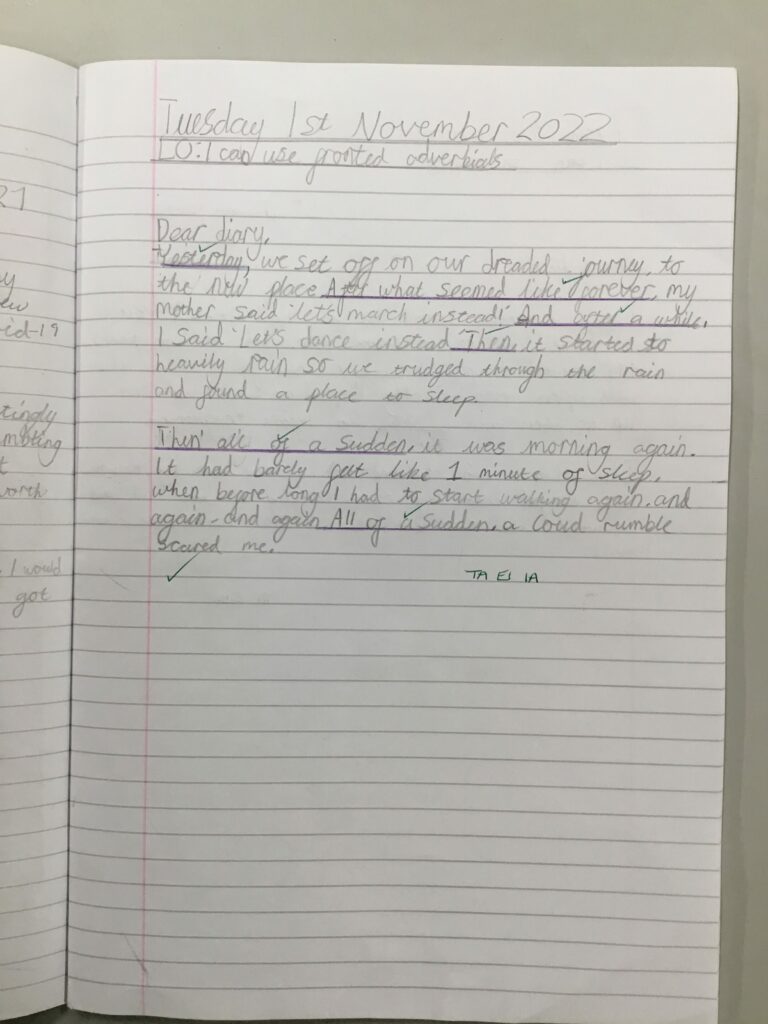 Tuesday 1st November 2022
LO: I can use fronted adverbials
Dear diary,
Yesterday, we set off on our dreaded journey, to
the new place After what seemed like forever, my
mother said 'let's march instead!' And after a while,
I said 'Let's dance instead Then, it started to
heavily rain so we trudged through the rain
and found a place to sleep.
Then' all of a sudden, it was morning again.
It had barely felt like 1 minute of sleep,
when before long I had to start walking again, and
again - and again All of a sudden, a loud rumble
scared me.
TA ES IA
21
ew
id-19
tingly
mbling
t
worth
. I would
got